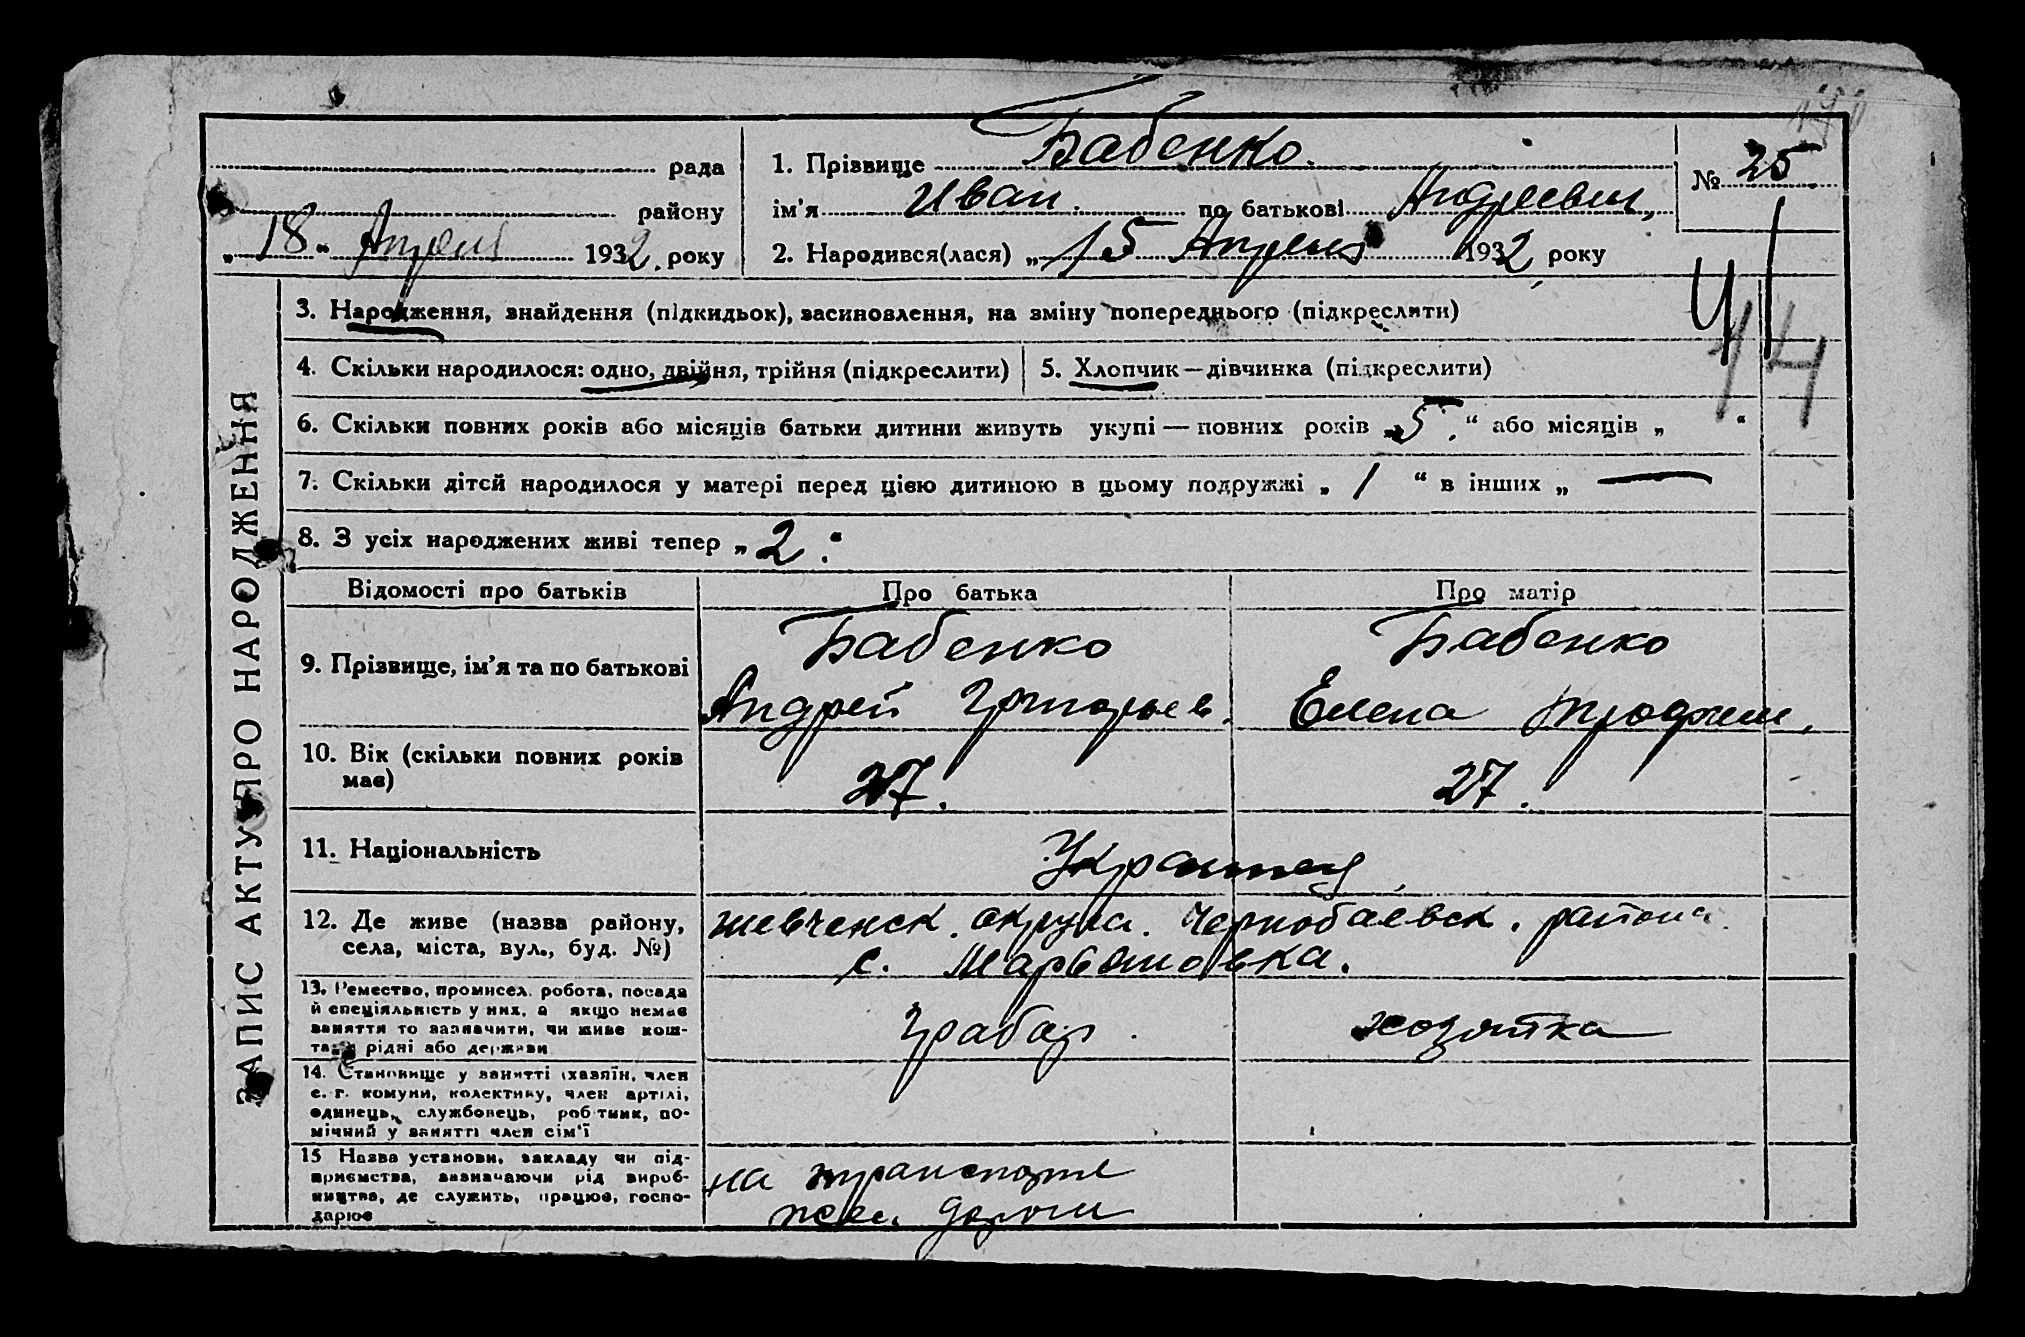 рада
району
„ 18 “ Апреля 1932 року
1. Прізвище Бабенко.
ім'я Иван. по батькові Андреевич,
2. Народився(лася) „ 15 Апреля 1932 року
№ 25
41
14
ЗАПИС АКТУ ПРО НАРОДЖЕННЯ
3. Народження, знайдення (підкидьок), засиновлення, на зміну попереднього (підкреслити)
4. Скільки народилося: одно, двійня, трійня (підкреслити)
5. Хлопчик — дівчинка (підкреслити)
6. Скільки повних років або місяців батьки дитини живуть укупі — повних років „ 5. “ або місяців „ “
7. Скільки дітей народилося у матері перед цією дитиною в цьому подружжі „ 1 “ в інших „ —
8. З усіх народжених живі тепер „ 2. “
Відомості про батьків
Про батька
Про матір
9. Прізвище, ім'я та по батькові
Бабенко
Андрей Григорьев.
Бабенко
Елена Трофим,
10. Вік (скільки повних років
має)
27.
27.
11. Національність
Украинец
12. Де живе (назва району,
села, міста, вул., буд. №)
Шевченск. округа. Чернобаевск. района
с. Марьяновка.
13. Ремество, промисел, робота, посада
й спеціяльність у них, а якщо немає
заняття то зазначити, чи живе кош-
том рідні або держави
Грабар.
хозяйка
14. Становище у занятті (хазяїн, член
с.-г. комуни, колективу, член артілі,
одинець, службовець, робітник, по-
мічний у занятті член сім'ї
15 Назва установи, закладу чи під-
приємства, визначаючи рід вироб-
ництва, де служить, працює, госпо-
дарює
на транспорте
жел. дороги